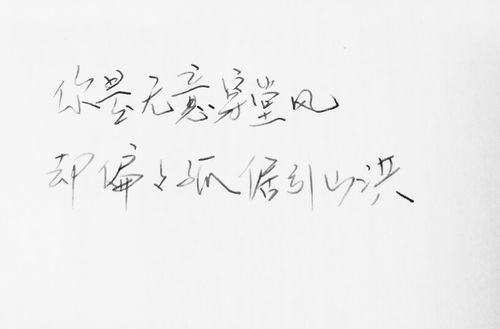 你是无意穿堂风
却偏偏孤倨引山洪